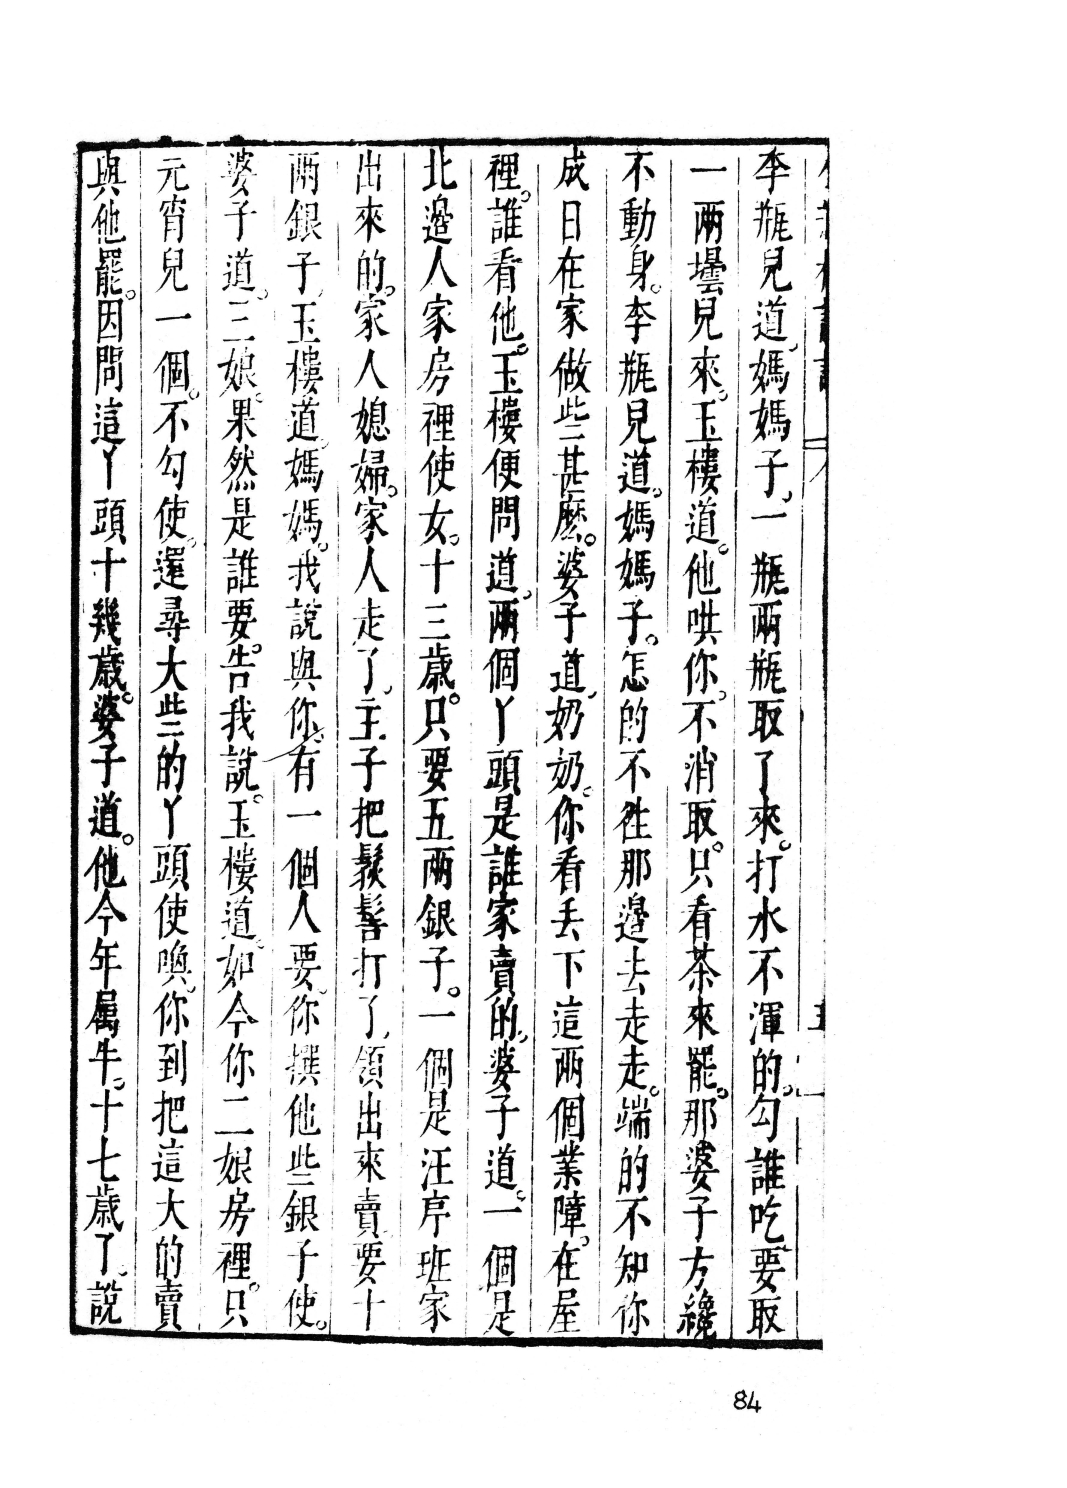 李瓶兒道、媽媽子、一瓶兩瓶取了來。打水不渾的。勾誰吃要取
一兩壜兒來。玉樓道。他哄你。不消取。只看茶來罷。那婆子方纔
不動身。李瓶兒道。媽媽子。怎的不徃那邊去走走。端的不知你
成日在家做些甚麽。婆子道、奶奶。你看丢下這兩個業障。在屋
裡。誰看他。玉樓便問道、兩個丫頭是誰家賣的、婆子道。一個是
北邉人家房裡使女。十三歲。只要五兩銀子。一個是汪序班家
出來的。家人媳婦。家人走了、主子把䯼髻打了、領出來賣要十
兩銀子、玉樓道。媽媽。我說與你。有一個人要。你撰他些銀子使。
婆子道。三娘。果然是誰要。告我說。玉樓道。如今你二娘房裡。只
元宵兒一個。不勾使。還尋大些的丫頭使喚。你到把這大的賣
與他罷。因問這丫頭十幾歲。婆子道。他今年属牛。十七歲了、說
84